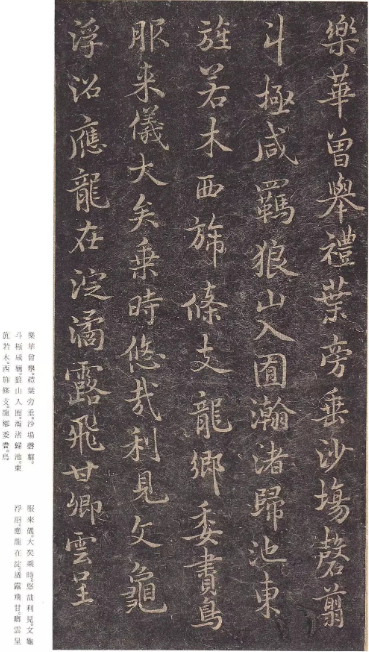 樂華曾舉禮葉旁垂沙塲罄翦
斗極咸羈狼山入囿瀚渚歸池東
旌若木西旆條支龍鄉委賮鳥
服来儀大矣乘時悠哉利見文龜
浮沼應龍在淀潏露飛甘卿雲呈
樂華曾舉。禮葉旁垂。沙塲罄翦。
斗極咸羈。狼山入囿。瀚渚歸池。東
旌若木。西旆條支。龍鄉委賮。鳥
服來儀。大矣乘時。悠哉利見。文龜
浮沼。應龍在淀。潏露飛甘。卿雲呈